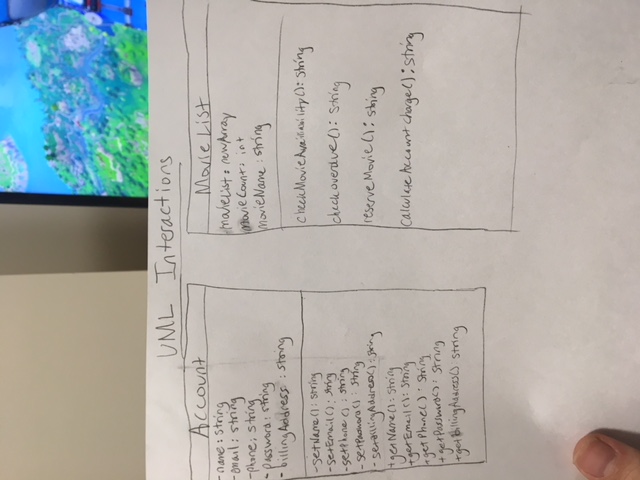 UML Interactions
Account
-name: String
-email: String
-phone: String
-password: String
-billingAddress: String
-setName(): String
-setEmail(): String
-setPhone(): String
-setPassword(): String
-setBillingAddress(): String
+getName(): String
+getEmail(): String
+getPhone(): String
+getPassword(): String
+getBillingAddress() String
Movie List
movieList: newArray
movieCount: int
movieName: String
checkMovieAvailiability(): String
checkoverdue(): String
reserveMovie(): String
CalculateAccountcharge(): String